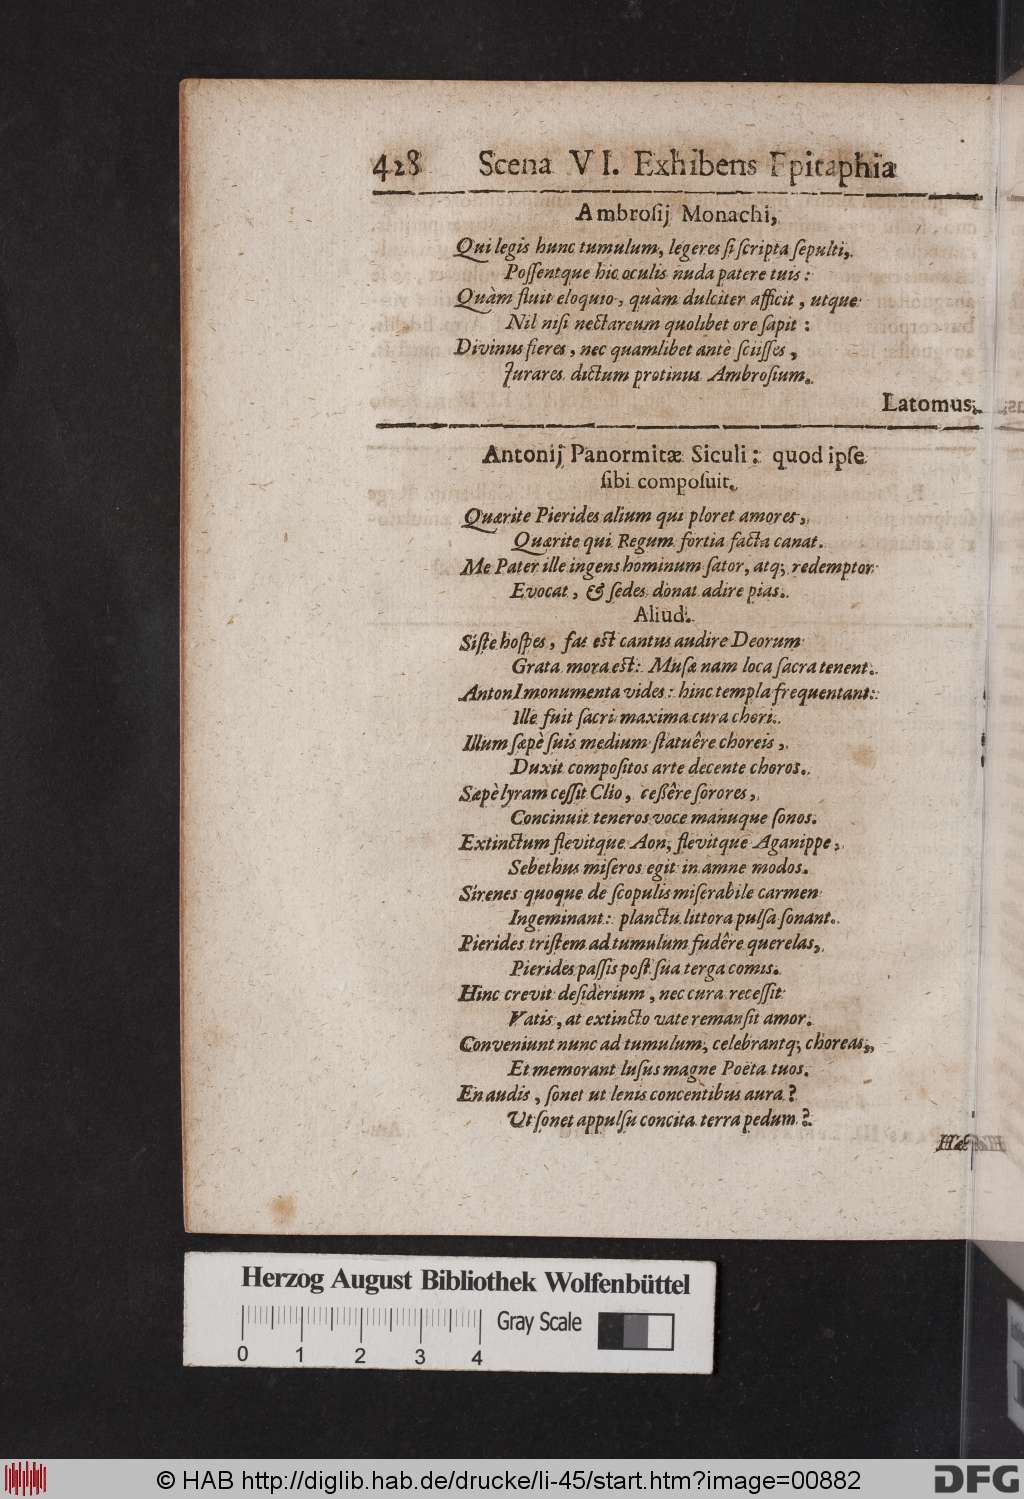 428 Scena VI. Exhibens Epitaphia
Ambroſij Monachi,
Qui legis hunc tumulum, legeres ſi ſcripta ſepulti,
Poſſentque hic oculis nuda patere tuis:
Quàm fluit eloquio, quàm dulciter afficit, utque
Nil niſi nectareum quolibet ore ſapit:
Divinus fieres, nec quamlibet antè ſciiſſes,
Jurares dictum protinus Ambroſium.
Latomus.
Antonij Panormitæ Siculi: quod ipſe
ſibi compoſuit.
Quærite Pierides alium qui ploret amores,
Quærite qui Regum fortia facta canat.
Me Pater ille ingens hominum ſator, atq; redemptor
Evocat, & ſedes donat adire pias.
Aliud.
Siſte hoſpes, fas eſt cantus audire Deorum
Grata mora eſt: Muſæ nam loca ſacra tenent.
AntonI monumenta vides: hinc templa frequentant:
Ille fuit ſacri maxima cura chori.
Illum ſæpè ſuis medium ſtatuêre choreis,
Duxit compoſitos arte decente choros.
Sæpè lyram ceſſit Clio, ceßêre ſorores,
Concinuit teneros voce manuque ſonos.
Extinctum flevitque Aon, flevitque Aganippe,
Sebethus miſeros egit in amne modos.
Sirenes quoque de ſcopulis miſerabile carmen
Ingeminant: planctu littora pulſa ſonant.
Pierides triſtem ad tumulum fudêre querelas,
Pierides paſſis poſt ſua terga comis.
Hinc crevit deſiderium, nec cura receſſit
Vatis, at extincto vate remanſit amor.
Conveniunt nunc ad tumulum, celebrantq; choreas,
Et memorant luſus magne Poëta tuos.
En audis, ſonet ut lenis concentibus aura?
Ut ſonet appulſu concita terra pedum?
Herzog August Bibliothek Wolfenbüttel
Gray Scale
0 1 2 3 4
© HAB http://diglib.hab.de/drucke/li-45/start.htm?image=00882
DFG